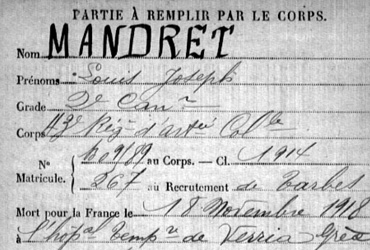 PARTIE À REMPLIR PAR LE CORPS.
Nom MANDRET
Prénoms Louis Joseph
Grade 2e Canr
Corps Rég d'artie Colle
No au Corps. — Cl. 1914
Matricule. 267 au Recrutement de Tarbes
Mort pour la France le 18 Novembre 1918
à l'hôpal tempre de Verria Grèce